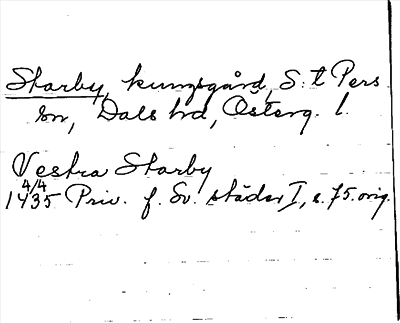 Starby, kungsgård, S:t Pers
sn, Dals hd, Österg. l.
Vestra Starby
4/4
1435 Priv. f. Sv. städer I, s. 75. orig.